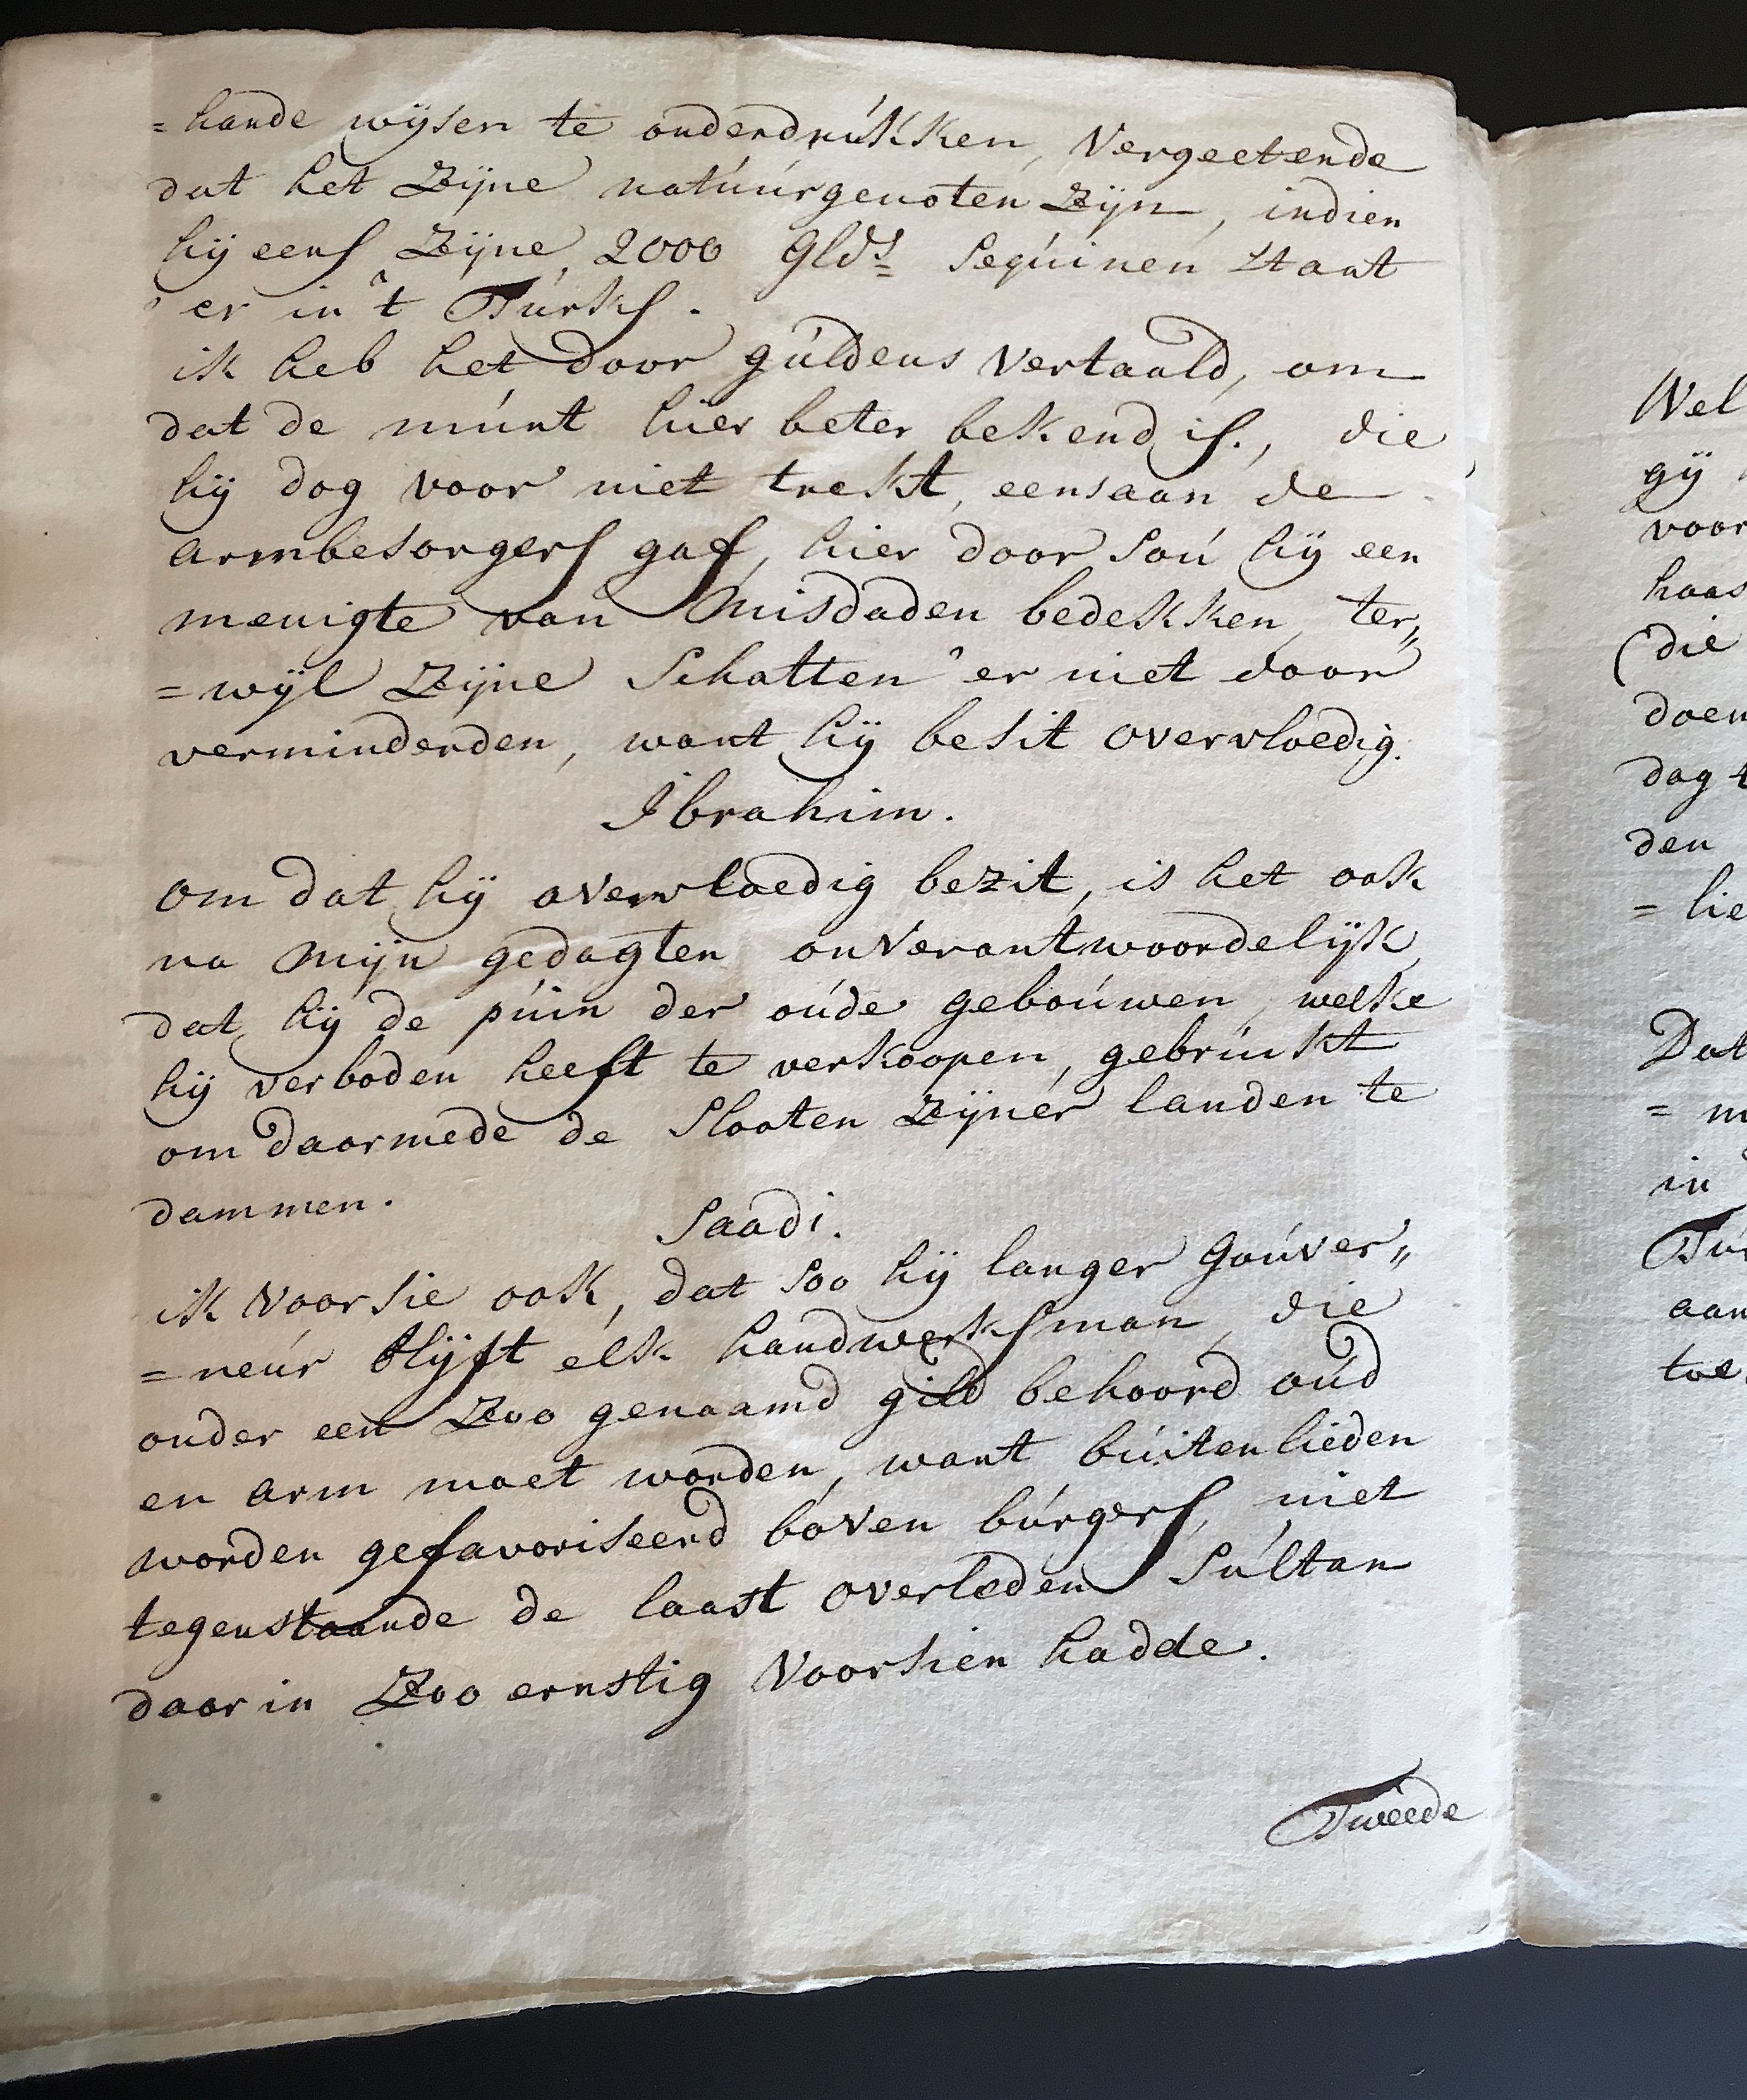 =hande wijsen te onderdrúkken, Vergeetende
dat het Zijne natúúrgenoten Zijn, indien
hij eens Zijne 2000 Glds= Sequinen staat
er in 't Túrks.
ik heb het door gúldens Vertaald, om
dat de múnt hier beter bekend is., die
hij dog voor niet trekt, eens aan de
armbesorgers gaf, hier door soú hij een
menigte van Misdaden bedekken, ter„
=wijl Zijne Schatten 'er niet door
verminderden, want hij besit overvloedig.
Ibrahim.
om dat hij overvloedig bezit, is het ook
na Mijn gedagten onverantwoordelijk
dat hij de púin der oúde geboúwen, welke
hij verboden heeft te verkoopen, gebrúikt
om daarmede de Slooten Zijner landen te
dammen.
Saadi.
ik Voorsie ook, dat soo hij langer Goúver„
=neúr blijft elk handwerksman, die
onder een Zoo genaamd gild behoord oúd
en arm moet worden, want búitenlieden
worden gefavoriseerd boven búrgers, niet
tegenstaande de laast overleden Súltan
daar in Zoo ernstig Voorsien hadde.
Tweede
Wel
gij
voor
haas
(die
doen
dag
den
= lie
Dat
= m
in
Túr
aan
toe